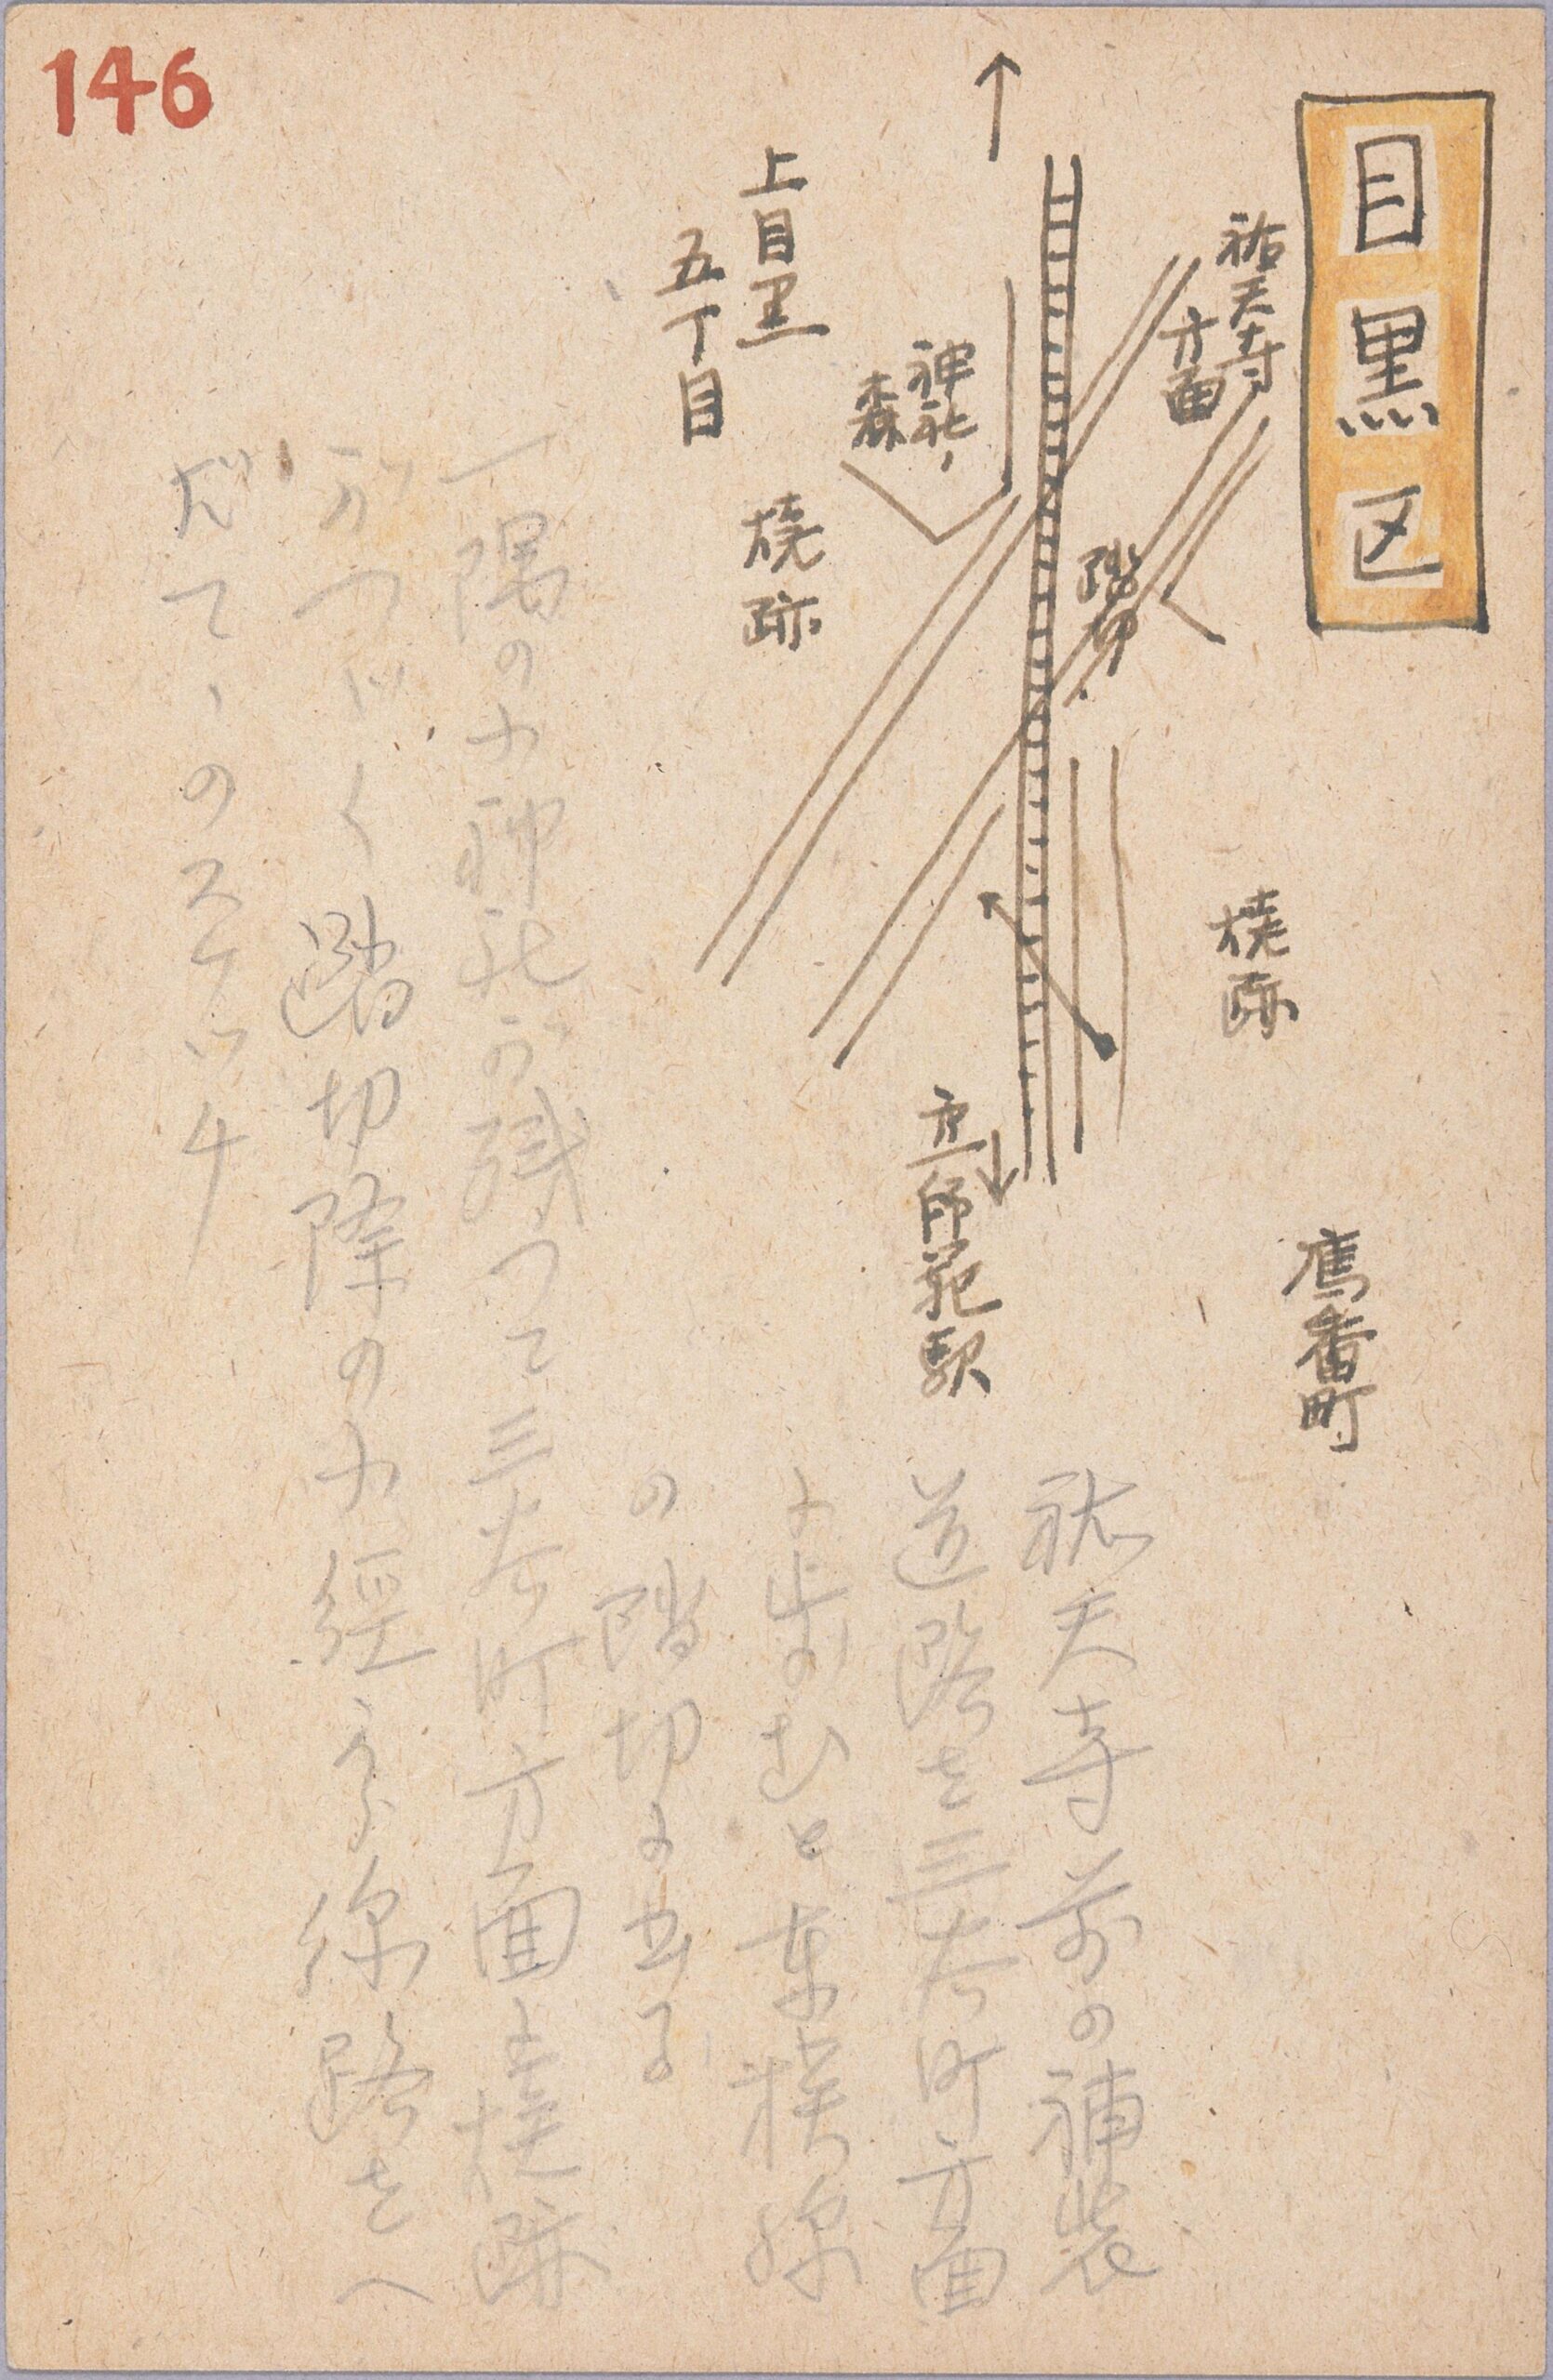 146
目黒区
祐天寺
方面
上目黒
五丁目
神社ノ
森
焼跡
踏切
焼跡
鷹番町
㐧一師範駅
祐天寺前の補装
道路を三谷町方面
に歩むと東横線
の踏切に出る
一隅の小神社が残つて三谷町方面は焼跡
がつゞく踏切際の小径から線路をへ
だてゝのスケッチ